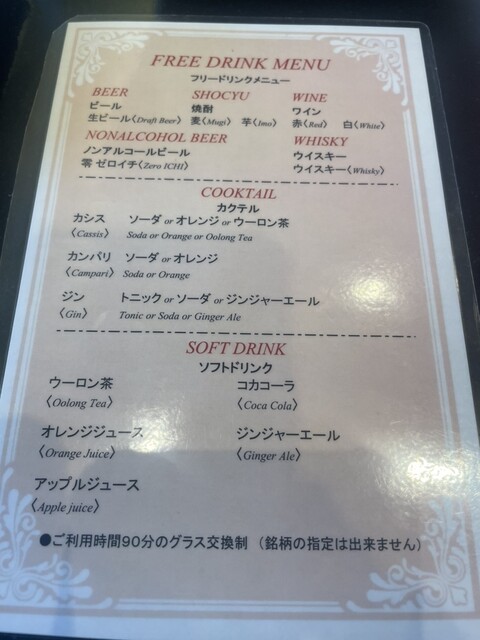 FREE DRINK MENU
フリードリンクメニュー
BEER SHOCYU WINE
ビール 焼酎 ワイン
生ビール〈Draft Beer〉 麦〈Mugi〉 芋〈Imo〉 赤〈Red〉 白〈White〉
NONALCOHOL BEER WHISKY
ノンアルコールビール ウイスキー
零 ゼロイチ〈Zero ICHI〉 ウイスキー〈Whisky〉
COOKTAIL
カクテル
カシス ソーダ or オレンジ or ウーロン茶
〈Cassis〉 Soda or Orange or Oolong Tea
カンパリ ソーダ or オレンジ
〈Campari〉 Soda or Orange
ジン トニック or ソーダ or ジンジャーエール
〈Gin〉 Tonic or Soda or Ginger Ale
SOFT DRINK
ソフトドリンク
ウーロン茶 コカコーラ
〈Oolong Tea〉 〈Coca Cola〉
オレンジジュース ジンジャーエール
〈Orange Juice〉 〈Ginger Ale〉
アップルジュース
〈Apple juice〉
●ご利用時間90分のグラス交換制 （銘柄の指定は出来ません）